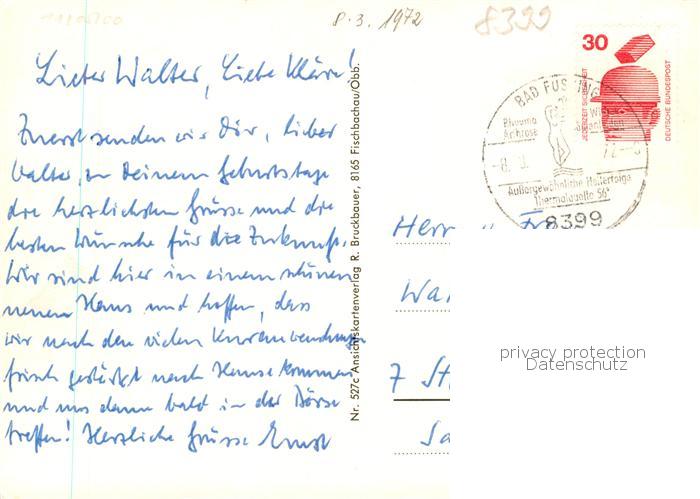 8.3.1972
8399
Lieber Walter, liebe Kläre!
Zuerst senden wir Dir, lieber
Walter, zu Deinem Geburtstage
die herzlichsten Grüsse und die
besten Wünsche für die Zukunft.
Wir sind hier in einem schönen
neuen Haus und hoffen, dass
wir nach den vielen Kuranwendungen
frisch gestärkt nach Hause kommen
und uns dann bald in der Börse
treffen! Herzliche Grüsse Ernst
Nr. 527c Ansichtskartenverlag R. Bruckbauer, 8165 Fischbachau/Obb.
30
JEDERZEIT SICHERHEIT
DEUTSCHE BUNDESPOST
BAD FÜSSING
Rheuma
Arthrose
Außergewöhnliche Heilerfolge
Thermalquelle 56°
8399
Herr u. Fr
Wa
7 St
Sa
privacy protection
Datenschutz